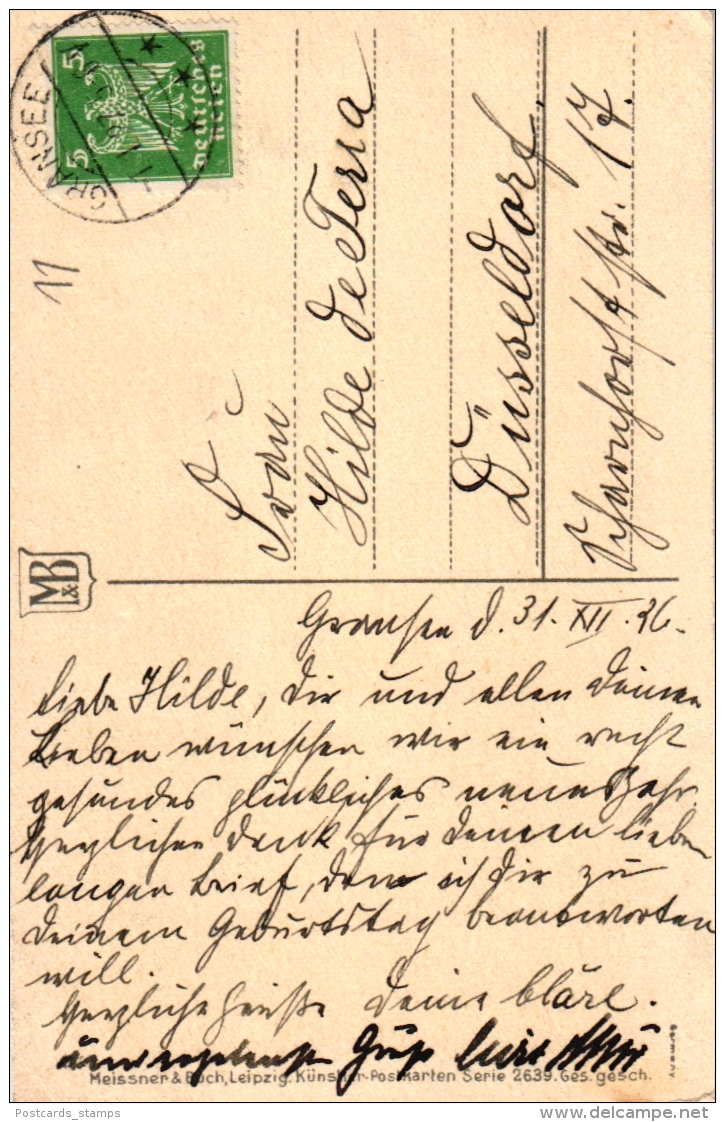 5 5
Deutsches
Reich
GRANSEE
11
Frau
Hilde de Terra
Düsseldorf,
Scharnhorststr. 17.
M&B
Gransee d. 31. XII. 26.
Liebe Hilde, Dir und allen Deinen
Lieben wünschen wir ein recht
gesundes glückliches neues Jahr.
Herzlichen Dank für Deinen lieben
langen Brief, den ich Dir zu
Deinem Geburtstag beantworten
will.
Herzliche Grüße Deine Kläre.
Gruß Curt
Meissner & Buch, Leipzig. Künstler-Postkarten Serie 2639. Ges. gesch.
Germany
Postcards_stamps
delcampe.net